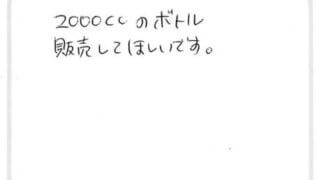 2000ccのボトル
販売してほしいです。